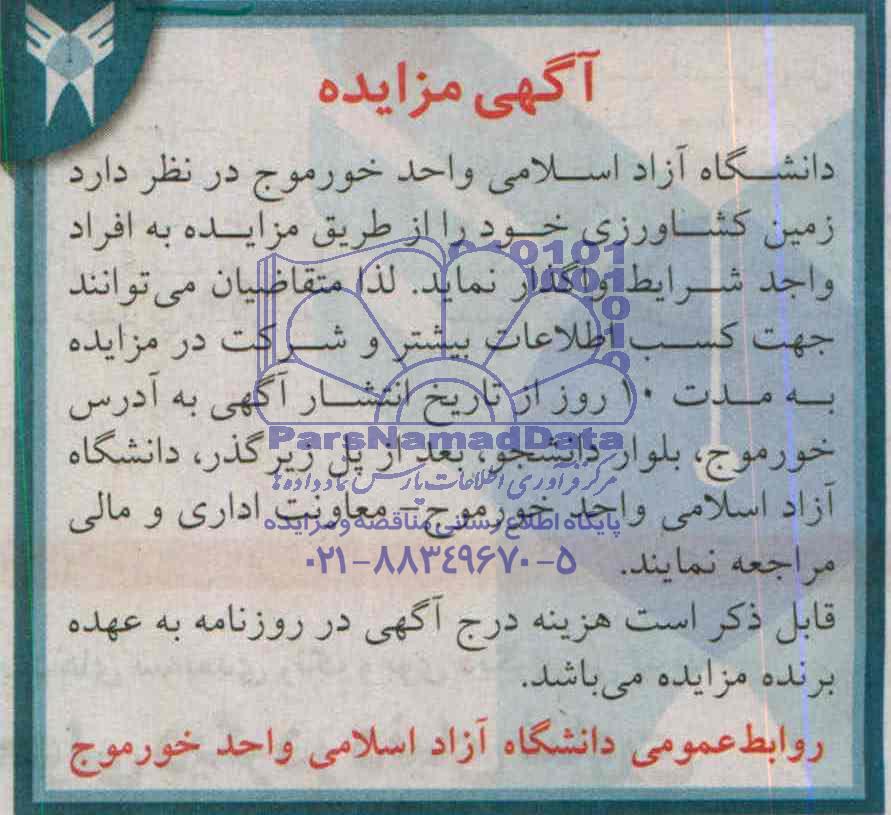 آگهی مزایده
دانشگاه آزاد اسلامی واحد خورموج در نظر دارد
زمین کشاورزی خود را از طریق مزایده به افراد
واجد شرایط واگذار نماید. لذا متقاضیان می‌توانند
جهت کسب اطلاعات بیشتر و شرکت در مزایده
به مدت ۱۰ روز از تاریخ انتشار آگهی به آدرس
خورموج، بلوار دانشجو، بعد از پل زیرگذر، دانشگاه
آزاد اسلامی واحد خورموج- معاونت اداری و مالی
مراجعه نمایند.
قابل ذکر است هزینه درج آگهی در روزنامه به عهده
برنده مزایده می‌باشد.
روابط‌عمومی دانشگاه آزاد اسلامی واحد خورموج
ParsNamadData
مرکز فرآوری اطلاعات پارس نماد داده‌ها
پایگاه اطلاع رسانی مناقصه و مزایده
۰۲۱-۸۸۳۴۹۶۷۰-۵